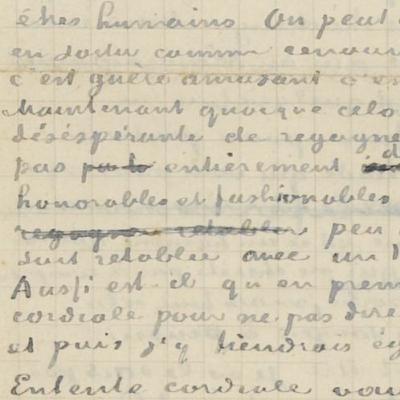 êtres humains On peut
en sortir comme
c'est guère amusant c'es
Maintenant quoique cela
déséspérante de regagne
pas entièrement
honorables et fashionables
regagner retablir peu
soit retablie avec un
Aussi est il qu'en prem
cordiale pour ne pas dire
et puis j'y tiendrais ég
Entente cordiale vou